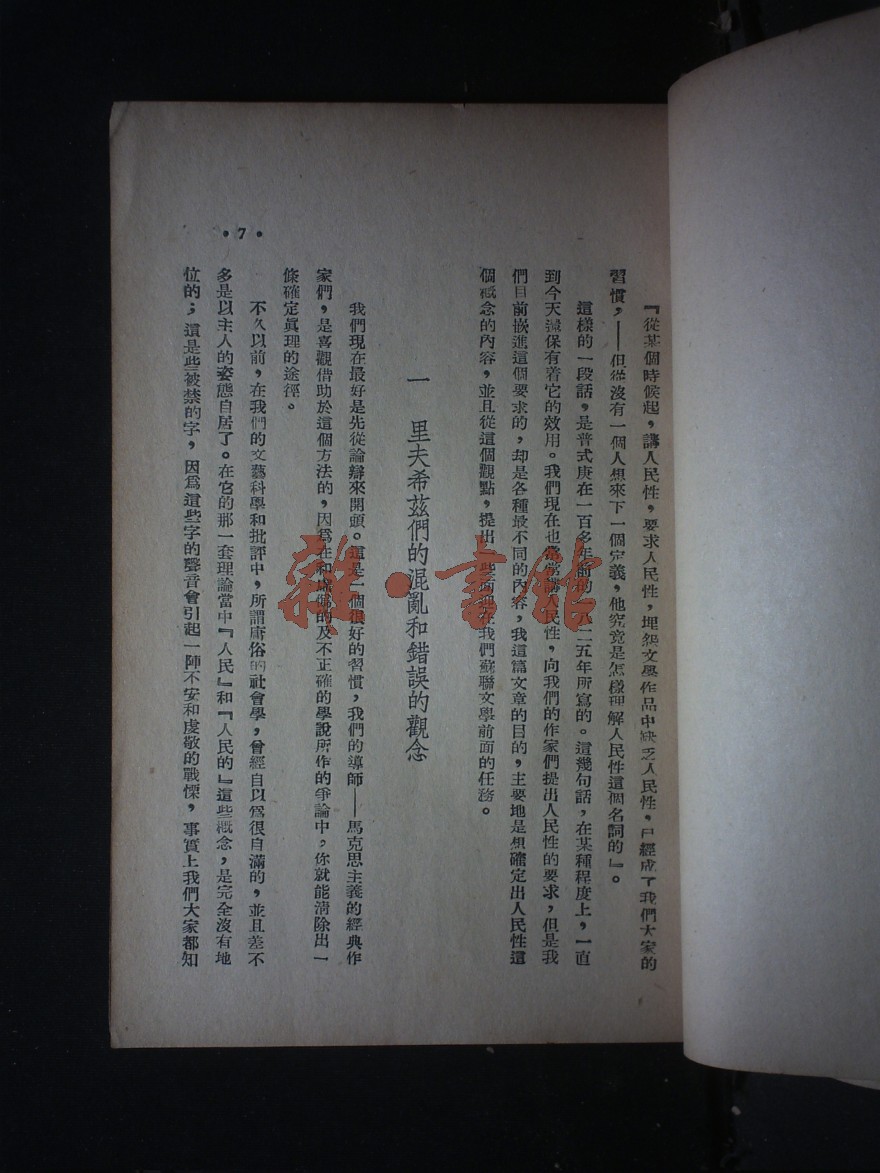 『從某個時候起，講人民性，要求人民性，埋怨文學作品中缺乏人民性，已經成了我們大家的
習慣，——但從沒有一個人想來下一個定義，他究竟是怎樣理解人民性這個名詞的』。
這樣的一段話，是普式庚在一百多年前的一八二五年所寫的。這幾句話，在某種程度上，一直
到今天還保有着它的效用。我們現在也常常講人民性，向我們的作家們提出人民性的要求，但是我
們目前嵌進這個要求的，却是各種最不同的內容，我這篇文章的目的，主要地是想確定出人民性這
個概念的內容，並且從這個觀點，提出一些面在我們蘇聯文學前面的任務。
一　里夫希茲們的混亂和錯誤的觀念
我們現在最好是先從論辯來開頭。這是一個很好的習慣，我們的導師——馬克思主義的經典作
家們，是喜觀借助於這個方法的，因爲在和虛僞的及不正確的學說所作的爭論中，你就能淸除出一
條確定眞理的途徑。
不久以前，在我們的文藝科學和批評中，所謂庸俗的社會學，曾經自以爲很自滿的，並且差不
多是以主人的姿態自居了。在它的那一套理論當中『人民』和『人民的』這些概念，是完全沒有地
位的；這是些被禁的字，因爲這些字的聲音會引起一陣不安和虔敬的戰慄，事實上我們大家都知
•7•
雜·書館